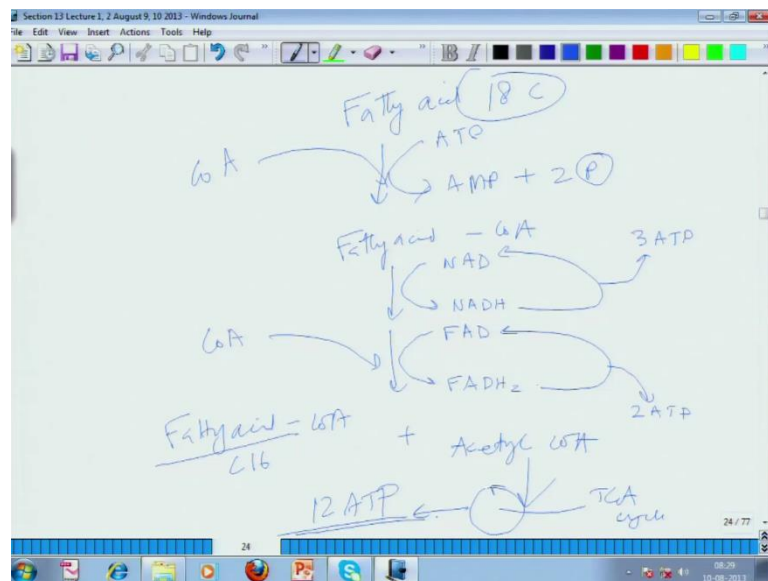 Section 13 Lecture 1, 2 August 9, 10 2013 - Windows Journal
File Edit View Insert Actions Tools Help
B I
Fatty acid 18 C
ATP
CoA
AMP + 2 P
Fatty acid - CoA
3 ATP
NAD
NADH
CoA
FAD
FADH2
2 ATP
Fatty acid - CoA + Acetyl CoA
C16
12 ATP
TCA
cycle
24 / 77
24
08:29
10-08-2013